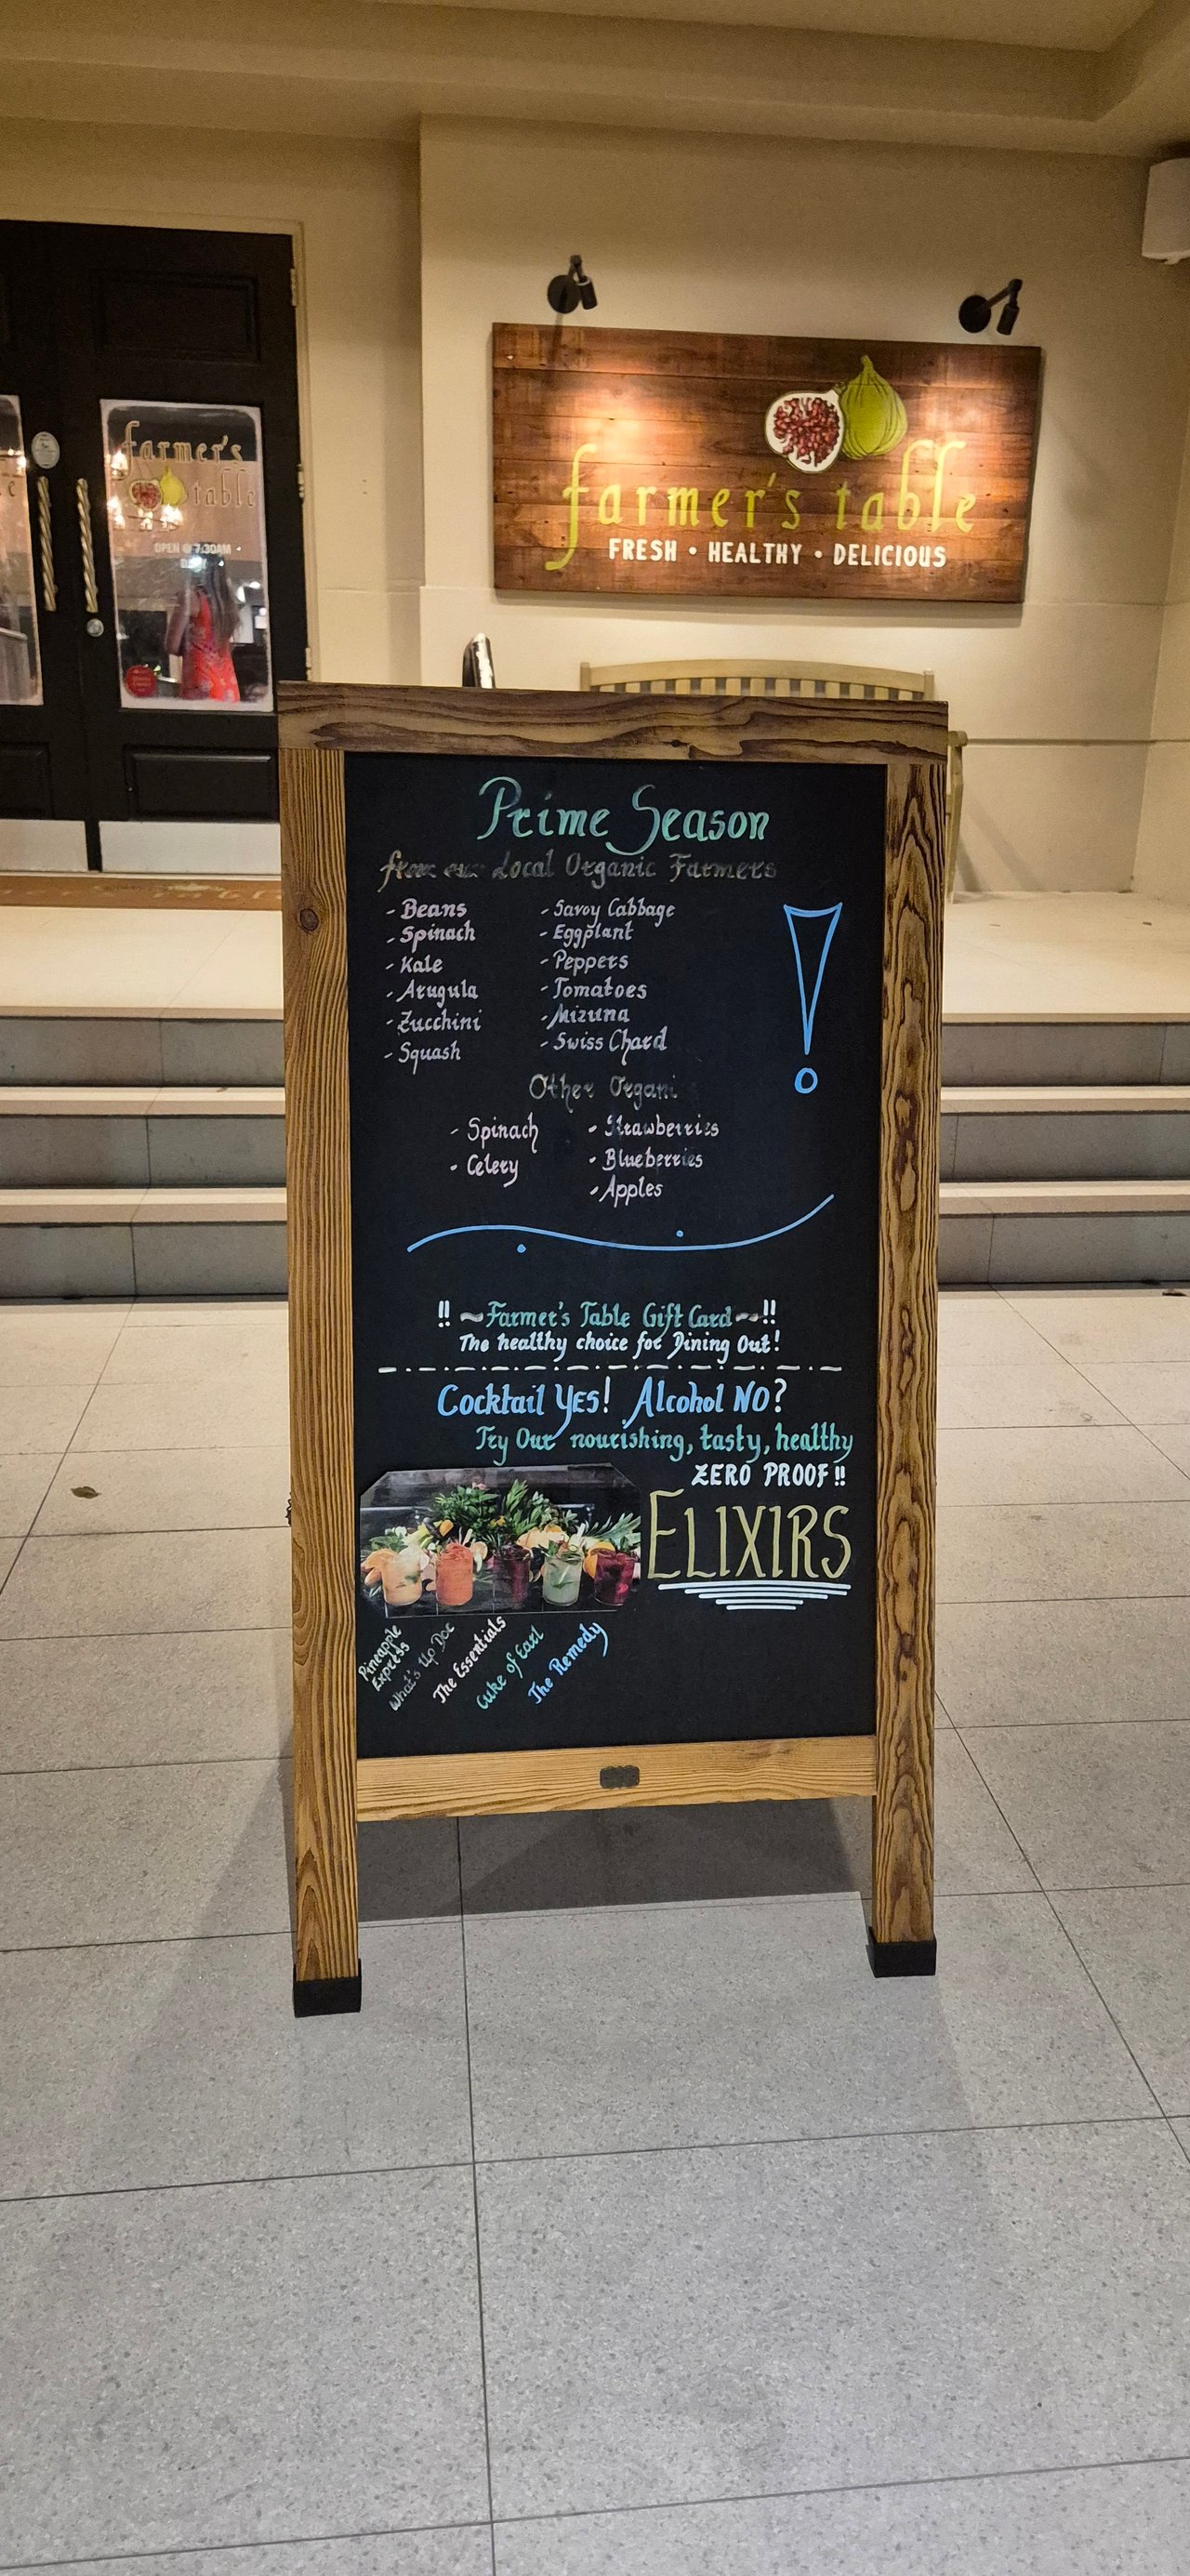 farmer's table
FRESH • HEALTHY • DELICIOUS
farmer's
table
OPEN @ 7:30AM
Prime Season
from our Local Organic Farmers
- Beans
- Spinach
- Kale
- Arugula
- Zucchini
- Squash
- Savoy Cabbage
- Eggplant
- Peppers
- Tomatoes
- Mizuna
- Swiss Chard
!
Other Organi
- Spinach
- Celery
- Strawberries
- Blueberries
- Apples
!! ~Farmer's Table Gift Card~!!
The healthy choice for Dining Out!
Cocktail YES! Alcohol NO?
Try Our nourishing, tasty, healthy
ZERO PROOF!!
ELIXIRS
Pineapple
Express
What's Up Doc
The Essentials
Cuke of Earl
The Remedy